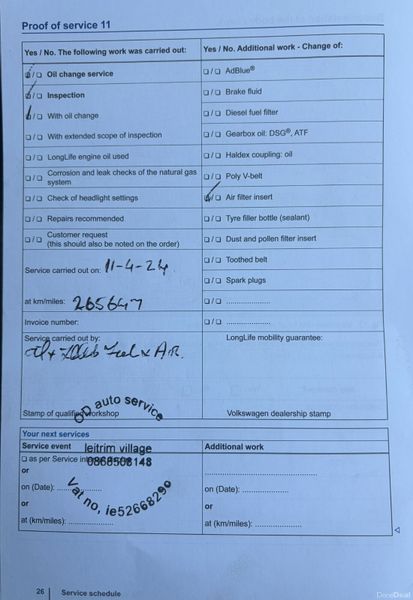 Proof of service 11
Yes / No. The following work was carried out:
❏/❏ Oil change service
❏/❏ Inspection
❏/❏ With oil change
❏/❏ With extended scope of inspection
❏/❏ LongLife engine oil used
❏/❏ Corrosion and leak checks of the natural gas
system
❏/❏ Check of headlight settings
❏/❏ Repairs recommended
❏/❏ Customer request
(this should also be noted on the order)
Service carried out on: 11-4-24
at km/miles: 265647
Invoice number:
Service carried out by:
Stamp of qualified workshop
OD auto service
leitrim village
0868508148
Vat no, ie52668290
Yes / No. Additional work - Change of:
❏/❏ AdBlue®
❏/❏ Brake fluid
❏/❏ Diesel fuel filter
❏/❏ Gearbox oil: DSG®, ATF
❏/❏ Haldex coupling: oil
❏/❏ Poly V-belt
❏/❏ Air filter insert
❏/❏ Tyre filler bottle (sealant)
❏/❏ Dust and pollen filter insert
❏/❏ Toothed belt
❏/❏ Spark plugs
❏/❏ ....................
❏/❏ ....................
LongLife mobility guarantee:
Volkswagen dealership stamp
Your next services
Service event
❏ as per Service
or
on (Date): ....................
or
at (km/miles): ....................
Additional work
........................................
on (Date): ....................
or
at (km/miles): ....................
26 Service schedule
DoneDeal